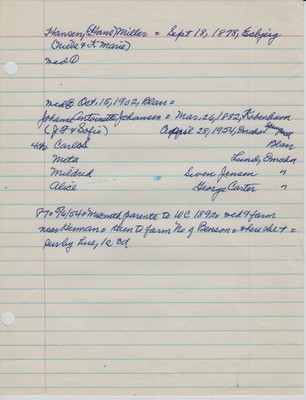 Hansen, Hans Miller = Sept 18, 1878, Esbjerg
(Niels & K Marie)
md ①
md ② Oct. 15, 1902, Blair =
Johanne Antoinette Johansen = Mar. 26, 1882, Kobenhavn
(J P & Sofie) April 28, 1954, Omaha
4ch Carlos Blair
Meta Lund, Omaha
Mildred Sven Jensen "
Alice George Carter "
87 = 5/6/54 = parents to WC 1892 = md & farm
near Herman = then to farm No of Benson = where she + =
sur by hus, 1s 3d